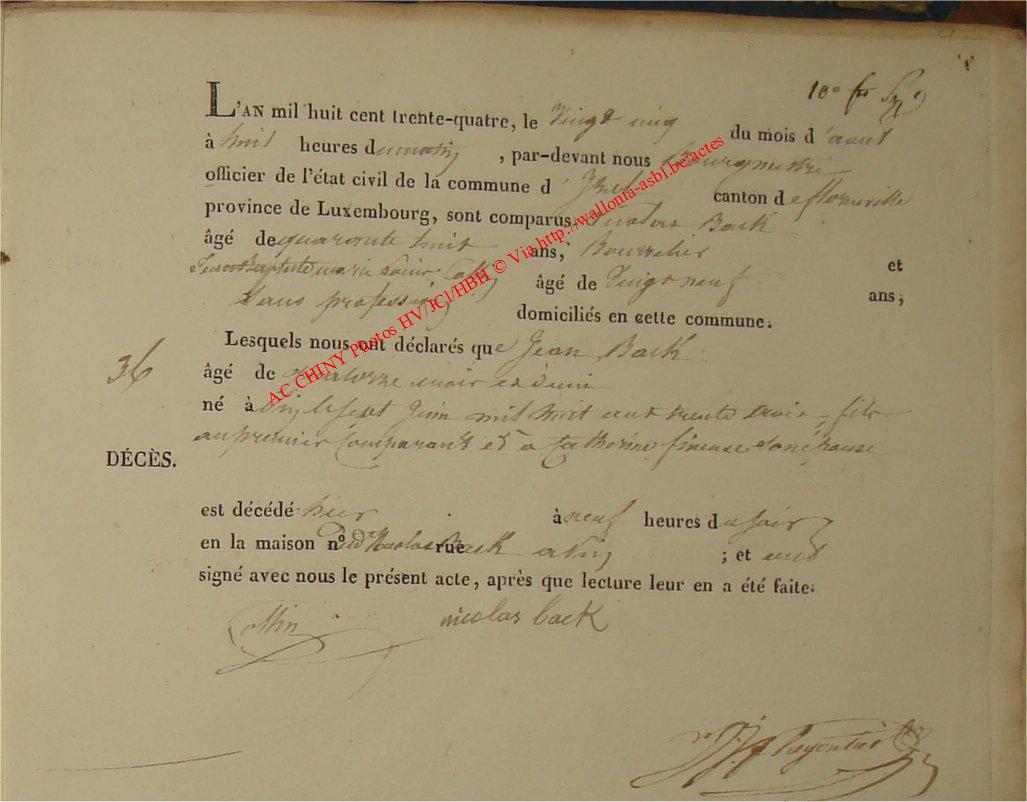 10e
L'AN mil huit cent trente-quatre, le Vingt cinq du mois d'aout
à huit heures du matin, par-devant nous Bourgmestre
officier de l'état civil de la commune d' Izel canton de florenville
province de Luxembourg, sont comparus Nicolas Back
âgé de quarante huit ans, Bourrelier et
Jean Baptiste marie Louis Collin âgé de Vingt neuf ans,
Sans profession domiciliés en cette commune.
Lesquels nous ont déclarés que Jean Back
36
âgé de quatorze mois et demi
né à le sept Juin mil huit cent trente trois, fils
au premier Comparant et a Catherine son épouse
DÉCÈS.
est décédé hier à neuf heures du soir
en la maison n° dud. Nicolas rue Back a ; et ont
signé avec nous le présent acte, après que lecture leur en a été faite.
Collin nicolas back
AC CHINY Photos HV/JCl/HBH © Via http://wallonia-asbl.be/actes